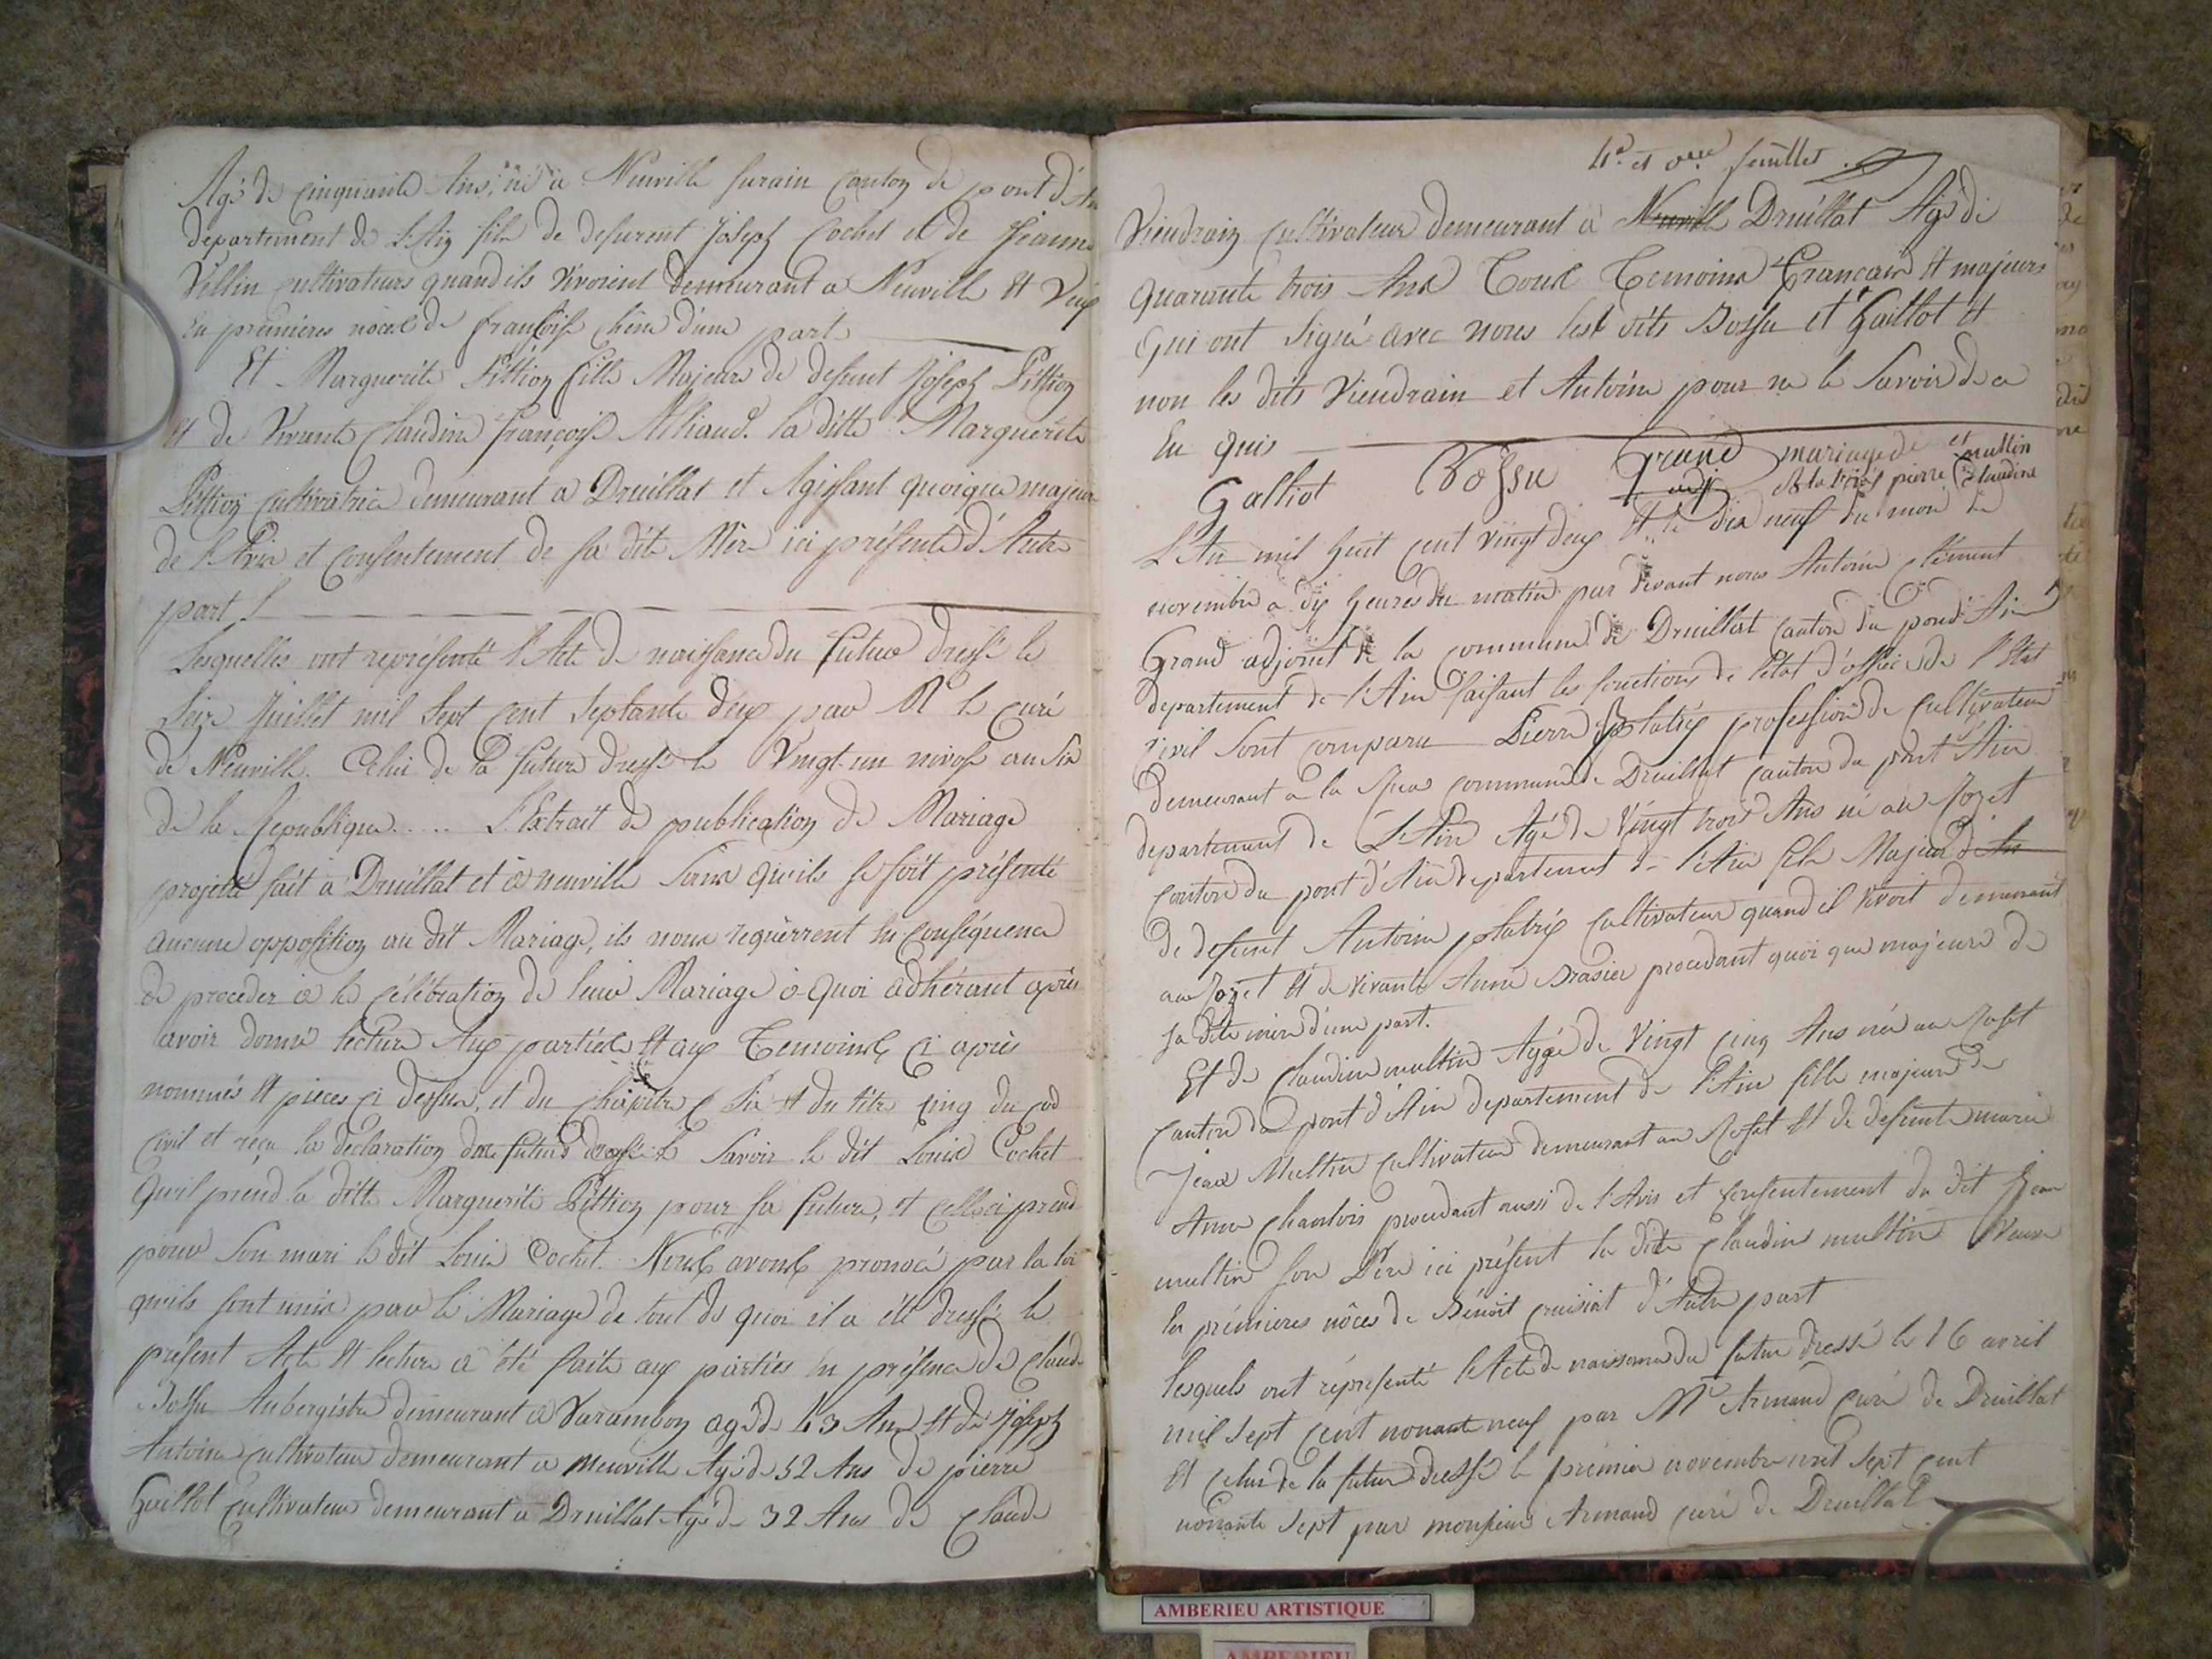 Agé de cinquante Ans, né a Neuville surain Canton de pont d'Ain
departement de L'Ain fils de defunt Joseph Cochet et de Jeanne
Villin cultivateurs quand ils vivoient demeurant a Neuville et Veuf
En premieres nôces de françoise Chêne d'une part
Et Marguerite Pittion fille Majeure de defunt Joseph Pittion
et de Vivante Claudine françoise Alliaud. la ditte Marguerite
Pittion Cultivatrice demeurant a Druillat et Agissant quoique majeure
de l'Avis et Consentement de sa dite Mère ici présente d'Autre
part
Lesquelles ont représenté l'Acte de naissance du futur dressé le
Seize Juillet mil Sept Cent Septante deux par Mr le Curé
de Neuville. Celui de la future dressé le Vingt-un nivose an Six
de la Republique..... L'Extrait de publication de Mariage
projetté fait a Druillat et a neuville Sans qu'ils se soit présenté
aucune opposition au dit Mariage, ils nous requèrrent En Conséquence
de proceder a la Célébration de leur Mariage a Quoi adhérant après
avoir donné lecture Aux parties et aux Temoins Ci après
nommés et pieces Ci dessus, et du Chapitre Six et du titre Cinq du Cod
Civil et reçu la déclaration des futurs Savoir le dit Louis Cochet
Qu'il prend la ditte Marguerite Pittion pour sa future, et celle ci prend
pour Son mari le dit Louis Cochet. Nous avons prononcé par la loi
qu'ils sont unis par le Mariage de tout de quoi il a été dressé le
présent Acte et lecture a été faite aux parties En présence de Claude
Bossu Aubergiste demeurant a Varambon agé de 43 Ans et de Joseph
Antoine Cultivateur demeurant a Neuville Agé de 52 Ans de pierre
Galliot Cultivateur demeurant a Druillat Agé de 32 Ans de Claude
4e. et 5eme. feuilles
Vieudrain Cultivateur demeurant a Neuville Druillat Agé de
Quarante trois Ans Tous Temoins Francais et majeurs
Qui ont Signé avec nous les dits Bossu et Galliot et
non les dits Vieudrain et Antoine pour ne le Savoir de ce
En quis
Galliot Bossu Grand adj
mariage de platrix pierre et multin Claudine
L'An mil huit Cent Vingt deux et le dix neuf du mois de
novembre a dix heures du matin par devant nous Antoine Clément
Grand adjoint de la Commune de Druillat Canton du pond'Ain
departement de l'Ain faisant les fonctions de l'etat d'officié de l'Etat
Civil Sont Comparu Pierre platrix profession de Cultivateur
demeurant a la Rua Commune de Druillat Canton du pont d'Ain
departement de L'Ain Agé de Vingt trois Ans né au Rozet
Canton du pont d'Ain departement de l'Ain fils Majeur
de defunt Antoine platrix Cultivateur quand il vivoit demeurant
au Rozet et de vivante Anne Brasier procedant quoi que majeure de
sa dite mère d'une part.
Et de Claudine multin Agée de Vingt Cinq Ans née au Roset
Canton du pont d'Ain departement de l'Ain fille majeure de
Jean Multin Cultivateur demeurant au Roset et de defunte marie
Anne Chanlois procedant aussi de l'Avis et Consentement du dit Jean
multin Son Père ici présent la dite Claudine multin Veuve
En premieres nôces de Bénoit Cruisiat d'Autre part
lesquels ont réprésenté l'Acte de naissance du futur dressé le 16 avril
mil Sept Cent nonante neuf par Mr Armand Curé de Druillat
Et celui de la future dressé le premier novembre mil Sept Cent
nonante Sept par monsieur Armand Curé de Druillat
AMBERIEU ARTISTIQUE
AMBERIEU